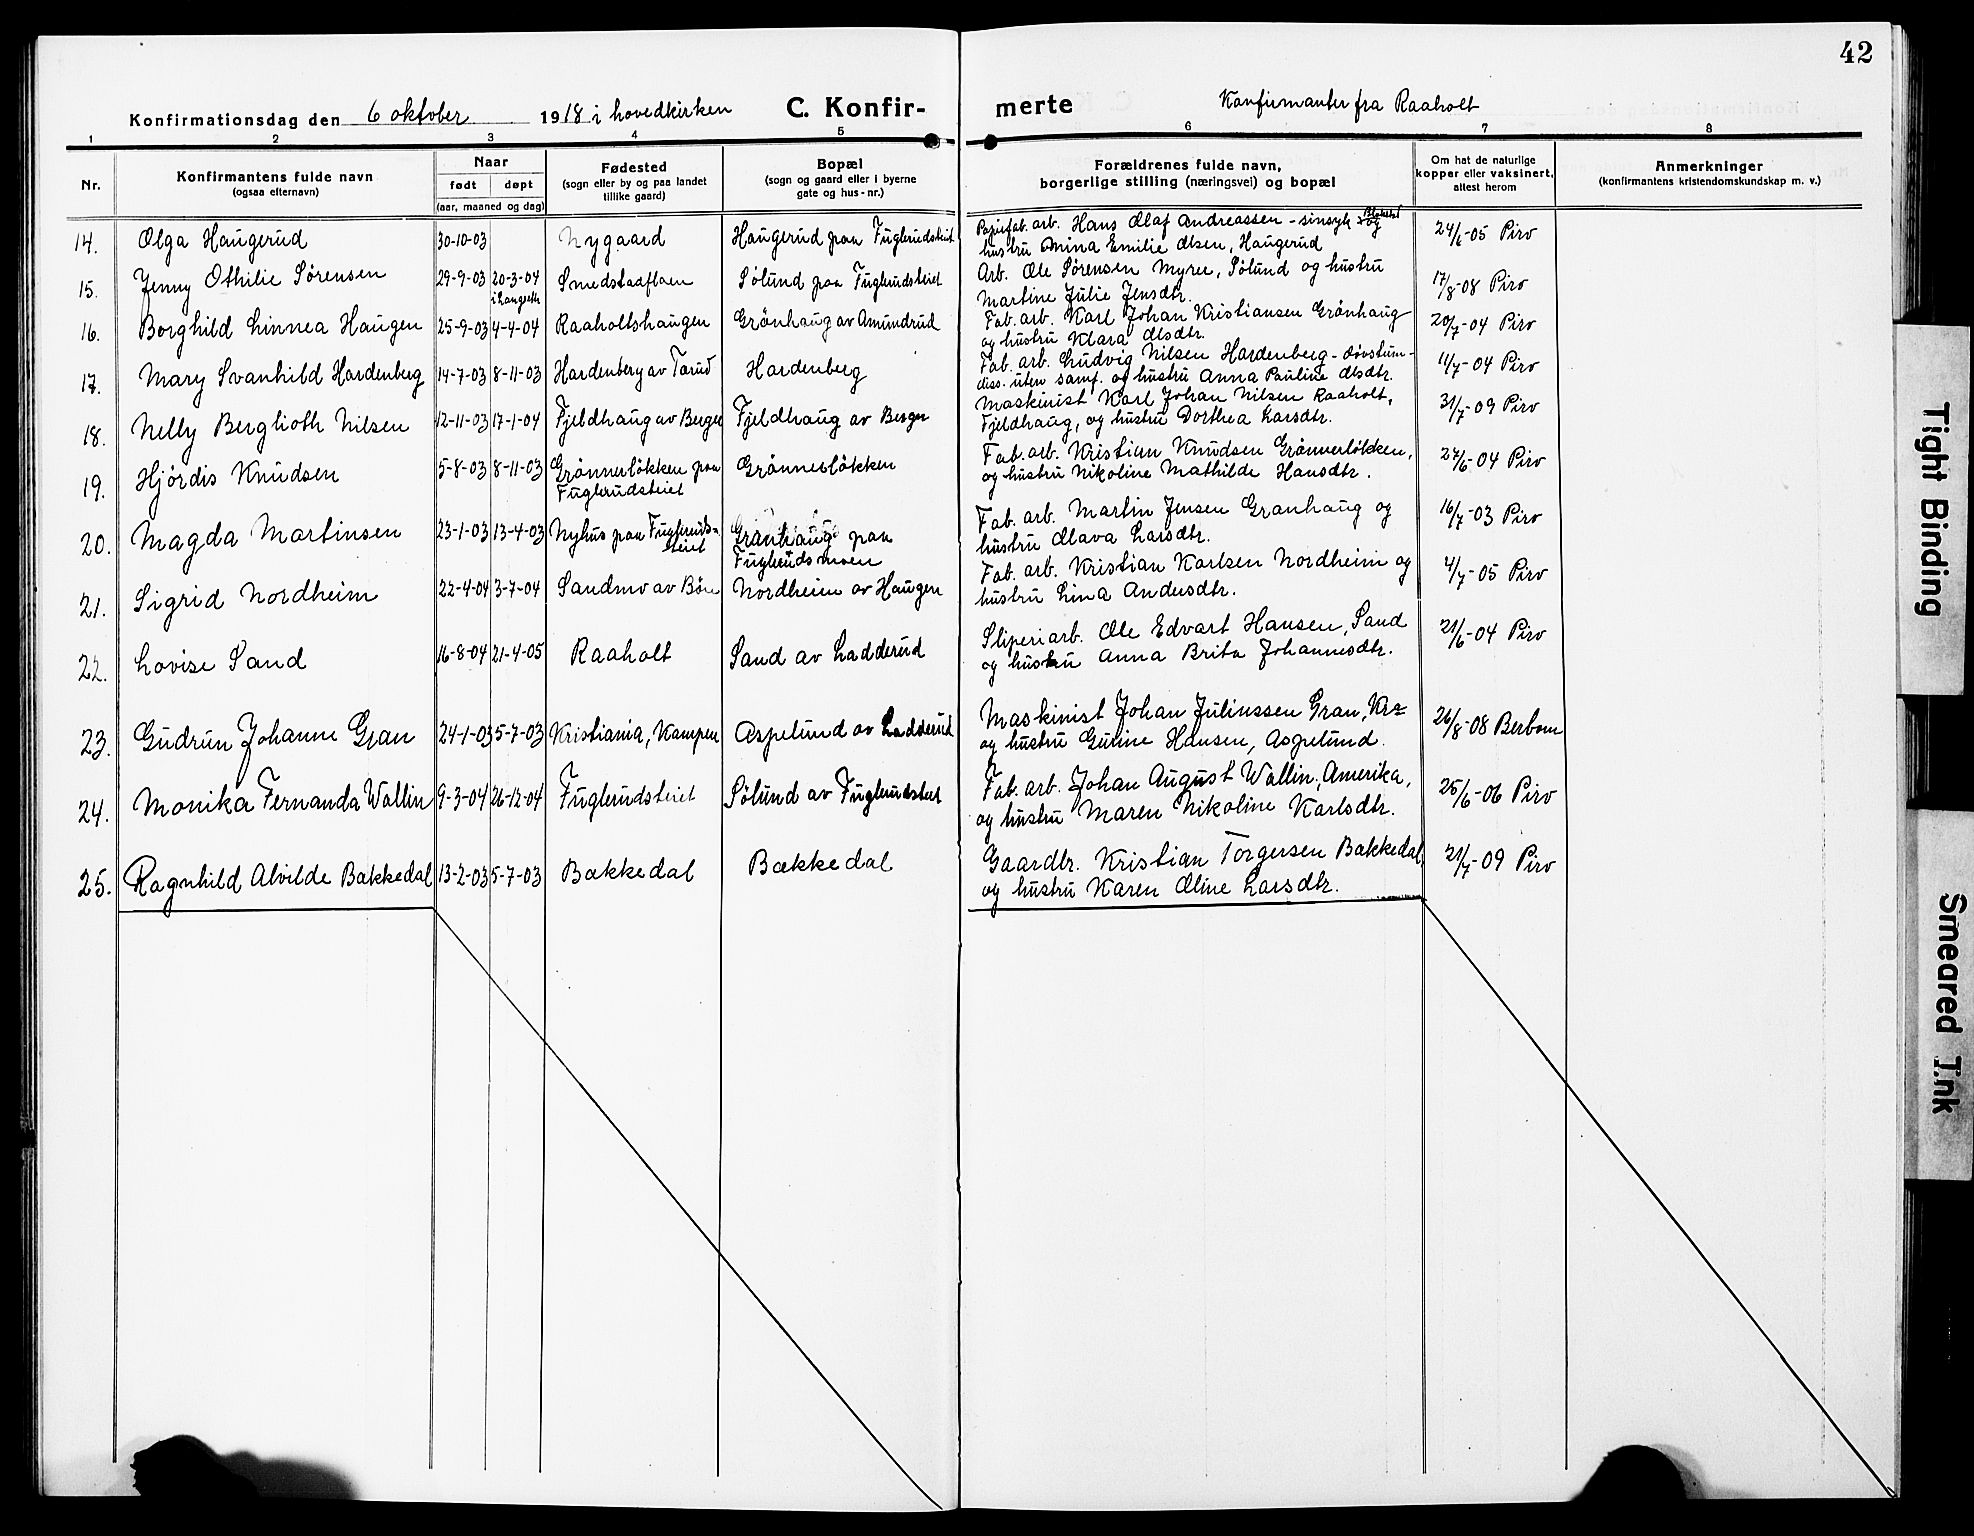 42
Konfirmationsdag den 6 oktober 1918 i hovedkirken C. Konfir-
merte Konfirmanter fra Raaholt
1 2 3 4 5 6 7 8
Nr.
Konfirmantens fulde navn
(ogsaa efternavn)
Naar
født døpt
(aar, maaned og dag)
Fødested
(sogn eller by og paa landet
tillike gaard)
Bopæl
(sogn og gaard eller i byerne
gate og hus-nr.)
Forældrenes fulde navn,
borgerlige stilling (næringsvei) og bopæl
Om hat de naturlige
kopper eller vaksinert,
attest herom
Anmerkninger
(konfirmantens kristendomskundskap m. v.)
14. Olga Haugerud 30-10-03 Nygaard Haugerud paa Fuglerudsteiet
Papirfab. arb. Hans Olaf Andreassen - sinsyk og
hustru Anina Emilie Olsen, Haugerud
24/6-05 Piro
15. Jenny Othilie Sørensen 29-9-03 20-3-04 Smedstadflaen Sølund paa Fuglerudsteiet
i Langseth
Arb. Ole Sørensen Myrer, Sølund og hustru
Martine Julie Jensdtr.
17/8-08 Piro
16. Borghild Linnea Haugen 25-9-03 4-4-04 Raaholtshaugen Grønhaug av Amundrud
Fab. arb. Karl Johan Kristiansen Grønhaug
og hustru Klara Olsdtr.
20/7-04 Piro
17. Mary Svanhild Hardenberg 14-7-03 8-11-03 Hardenberg av Tørud Hardenberg
Fab. arb. Ludvig Nilsen Hardenberg - døvstum -
diss. uten samf. og hustru Anna Pauline Olsdtr.
11/7-04 Piro
18. Nelly Berglioth Nilsen 12-11-03 17-1-04 Fjeldhaug av Berger Fjeldhaug av Berger
Maskinist Karl Johan Nilsen Raaholt,
Fjeldhaug, og hustru Dorthea Larsdtr.
31/7-09 Piro
19. Hjørdis Knudsen 5-8-03 8-11-03 Grønnerløkken paa Grønnerløkken
Fuglerudsteiet
Fab. arb. Kristian Knudsen Grønnerløkken,
og hustru Nikoline Mathilde Hansdtr.
27/6-04 Piro
20. Magda Martinsen 23-1-03 13-4-03 Nyhus paa Fugleruds-
teiet
Granhaug paa
Fuglerudsmoen
Fab. arb. Martin Jensen Granhaug og
hustru Olava Larsdtr.
16/7-03 Piro
21. Sigrid Nordheim 22-4-04 3-7-04 Sandmo av Bøn Nordheim av Haugen
Fab. arb. Kristian Karlsen Nordheim og
hustru Lina Andersdtr.
4/7-05 Piro
22. Lovise Sand 16-8-04 21-4-05 Raaholt Sand av Ladderud
Sliperiarb. Ole Edvart Hansen, Sand
og hustru Anna Brita Johannesdtr.
21/6-04 Piro
23. Gudrun Johanne Gran 24-1-03 5-7-03 Kristiania, Kampen Aspelund av Ladderud
Maskinist Johan Juliussen Gran, Kra
og hustru Gurine Hansen, Aspelund.
26/8-08 Berbom
24. Monika Fernanda Wallin 9-3-04 26-12-04 Fuglerudsteiet Sølund av Fuglerudsteiet
Fab. arb. Johan August Wallin, Amerika,
og hustru Maren Nikoline Karlsdtr.
25/6-06 Piro
25. Ragnhild Alvilde Bakkedal 13-2-03 5-7-03 Bakkedal Bakkedal
Gaardbr. Kristian Torgersen Bakkedal
og hustru Karen Oline Larsdtr.
21/7-09 Piro
Tight Binding
Smeared Ink